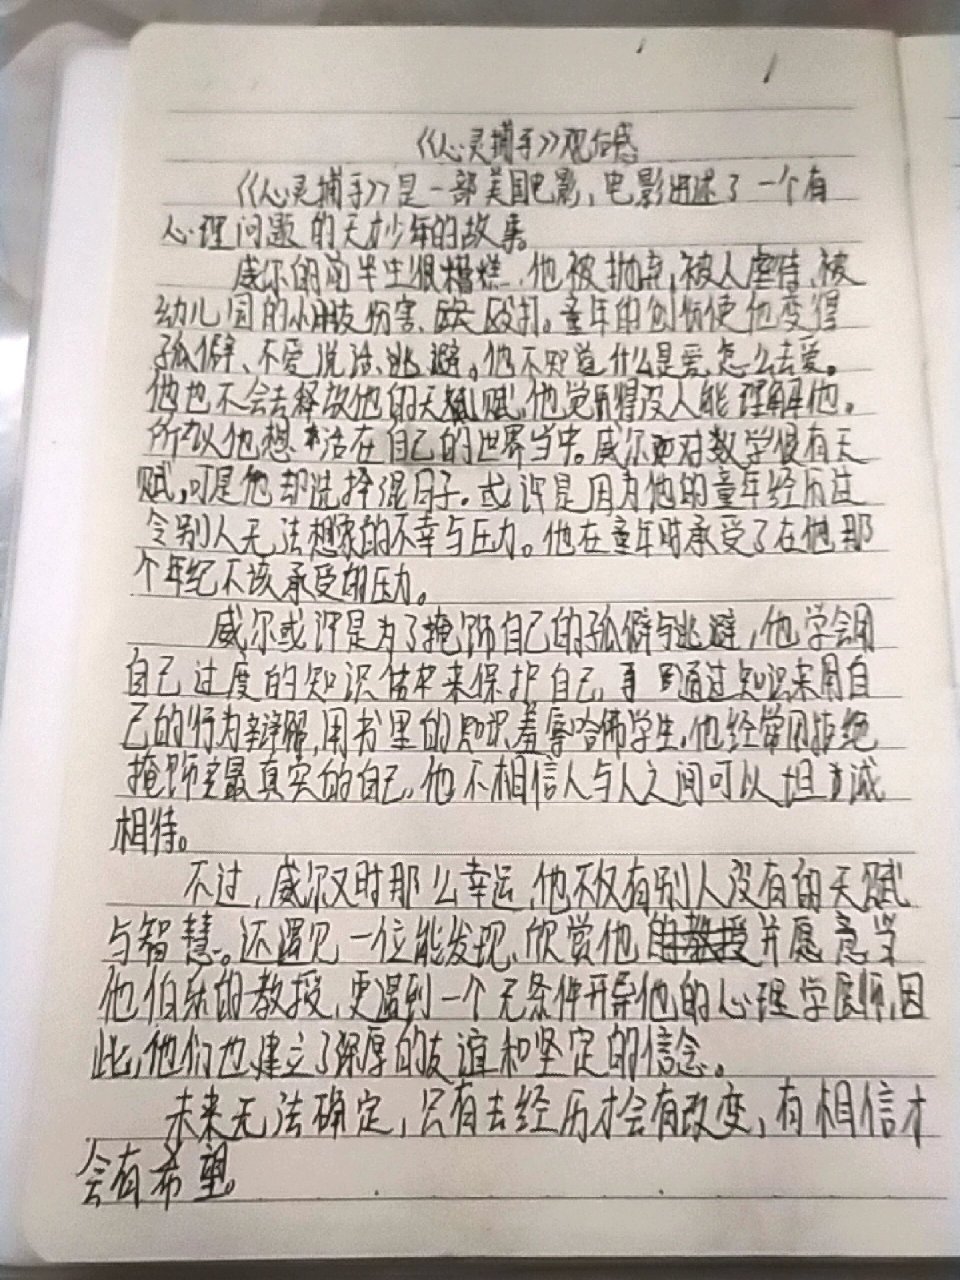 《心灵捕手》观后感
《心灵捕手》是一部美国电影,电影讲述了一个有
心理问题的天才少年的故事。
威尔的前半生很糟糕,他被抛弃,被人虐待、被
幼儿园的小朋友伤害、殴打。童年的创伤使他变得
孤僻、不爱说话、逃避。他不知道什么是爱怎么去爱。
他也不会去释放他的天赋。他觉得没人能理解他。
所以他想活在自己的世界当中。威尔对数学很有天
赋,可是他却选择混日子。或许是因为他的童年经历过
令别人无法想象的不幸与压力。他在童年时承受了在他那
个年纪不该承受的压力。
威尔或许是为了掩饰自己的孤僻与逃避,他学会用
自己过度的知识储来保护自己,通过知识来用自
己的行为辩解,用书里的知识羞辱哈佛学生。他经常用拒绝
掩饰最真实的自己,他不相信人与人之间可以坦诚
相待。
不过,威尔又时那么幸运,他不仅有别人没有的天赋
与智慧。还遇见一位能发现、欣赏他并愿意当
他伯乐的教授,更遇到一个无条件开导他的心理学医师,因
此,他们也建立了深厚的友谊和坚定的信念。
未来无法确定,只有去经历才会有改变,有相信才
会有希望。